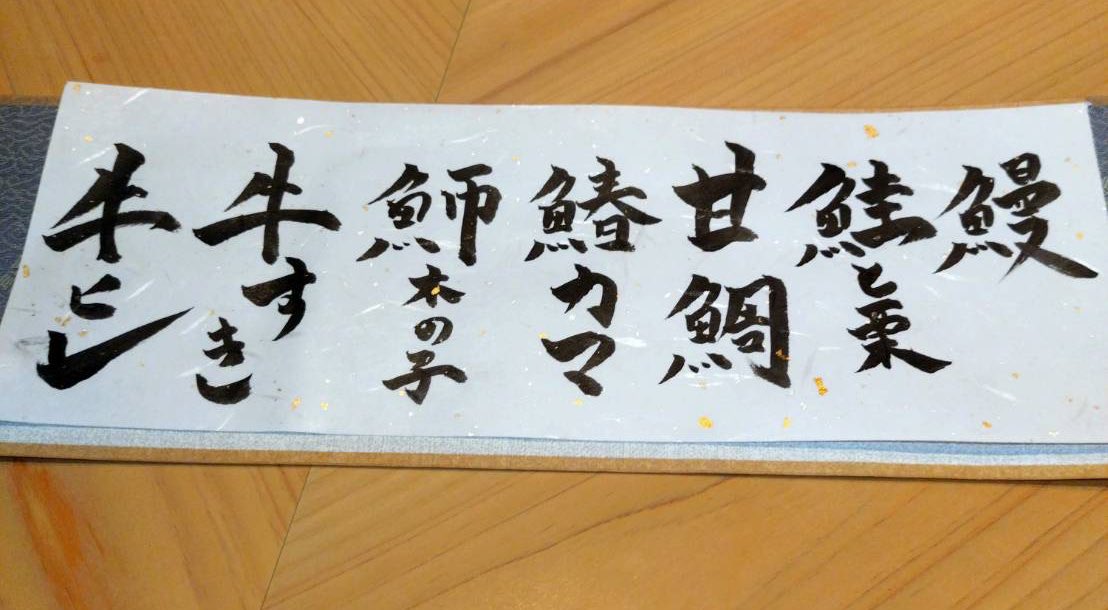 鰻
鮭と栗
甘鯛
鰆カマ
鰤木の子
牛すき
牛ヒレ